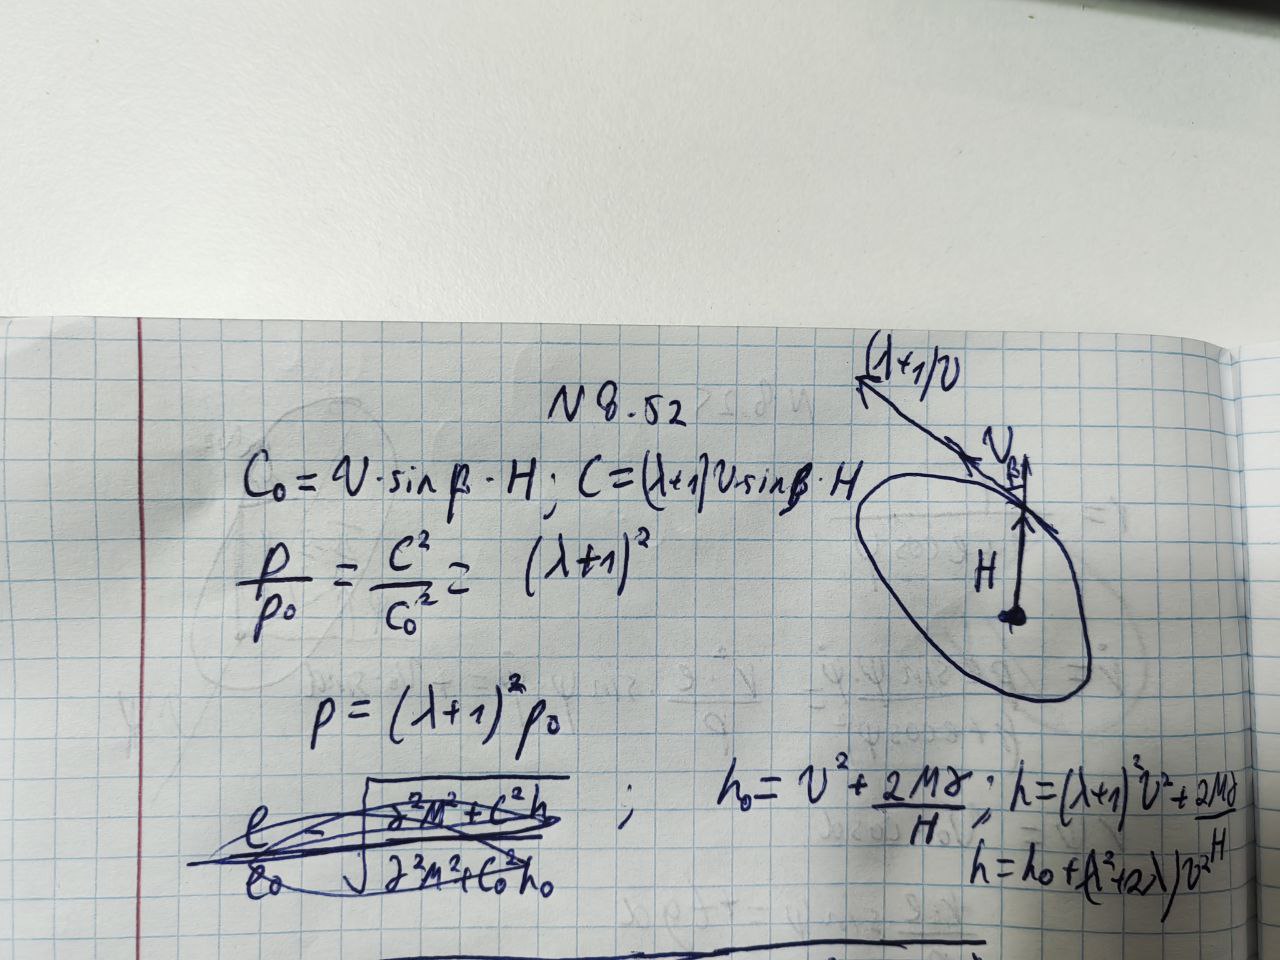 N 8.52
C₀ = v·sin β·H; C = (λ+1)v sin β·H
p/p₀ = C²/C₀² = (λ+1)²
p = (λ+1)² p₀
e/e₀ = √(γ²M² + C²h / γ²M² + C₀²h₀) ; h₀ = v² + 2Mγ/H; h = (λ+1)²v² + 2Mγ/H
h = h₀ + (λ²+2λ)v²
(λ+1)v
v
β
H